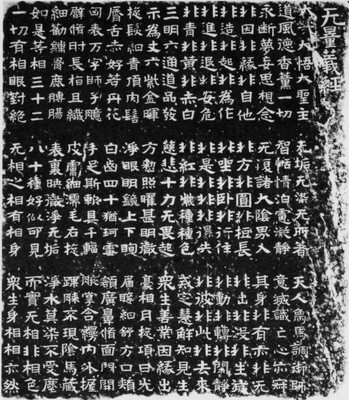 无量義經
大哉大悟大聖主 无垢无染无所著 天人象馬調御師
道風德香薰一切 智恬情泊慮凝靜 意滅識亡心亦寂
永斷夢妄思想念 无復諸大陰界入 其身非有亦非无
非因非緣非自他 非方非圓非短長 非出非沒非生滅
非造非起非為作 非坐非卧非行住 非動非轉非閑靜
非進非退非安危 非是非非非得失 非彼非此非去來
非青非黃非赤白 非紅非紫種種色 戒定慧解知見生
三明六通道品發 慈悲十力无畏起 衆生善業因緣出
示為丈六紫金暉 方整照曜甚明徹 毫相月旋項日光
旋髮紺青頂肉髻 淨眼明鏡上下眴 眉睫紺舒方口頰
脣舌赤好若丹花 白齒四十猶珂雪 額廣鼻脩面門開
胸表万字師子臆 手足柔軟具千輻 腋掌合縵內外握
臂脩肘長指直纖 皮膚細軟毛右旋 踝膝不現陰馬藏
細筋鎖骨鹿膊腸 表裏映徹淨无垢 淨水莫染不受塵
如是等相三十二 八十種好似可見 而實无相非相色
一切有相眼對絕 无相之相有相身 衆生身相相亦然